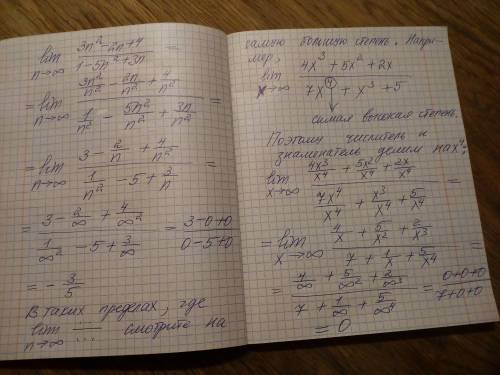 lim n→∞ (3n² - 2n + 4)/(1 - 5n² + 3n) =
= lim n→∞ (3n²/n² - 2n/n² + 4/n²)/(1/n² - 5n²/n² + 3n/n²) =
= lim n→∞ (3 - 2/n + 4/n²)/(1/n² - 5 + 3/n) =
= (3 - 2/∞ + 4/∞²)/(1/∞² - 5 + 3/∞) = (3-0+0)/(0-5+0)
= - 3/5
В таких пределах, где
lim n→∞ ...../.... смотрите на
самую большую степень. Напри-
мер,
lim x→∞ (4x³ + 5x² + 2x)/(7x⁴ + x³ + 5)
самая высокая степень.
Поэтому числитель и
знаменатель делим на x⁴:
lim x→∞ (4x³/x⁴ + 5x²/x⁴ + 2x/x⁴)/(7x⁴/x⁴ + x³/x⁴ + 5/x⁴) =
= lim x→∞ (4/x + 5/x² + 2/x³)/(7 + 1/x + 5/x⁴) =
= (4/∞ + 5/∞² + 2/∞³)/(7 + 1/∞ + 5/∞⁴) = (0+0+0)/(7+0+0)
= 0.